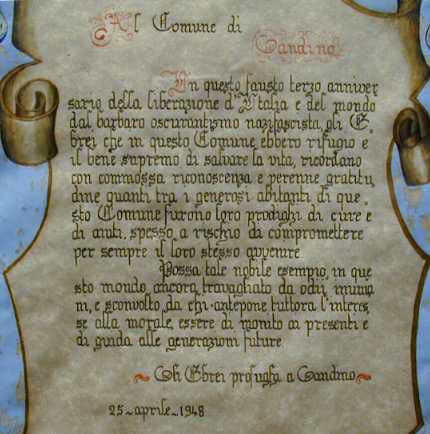 Al Comune di
Gandino
In questo fausto terzo anniver
sario della liberazione d'Italia e del mondo
dal barbaro oscurantismo nazifascista, gli E-
brei che in questo Comune ebbero rifugio e
il bene supremo di salvare la vita, ricordano
con commossa riconoscenza e perenne gratitu,
dine quanti tra i generosi abitanti di que-
sto Comune furono loro prodighi di cure e
di aiuti, spesso a rischio di compromettere
per sempre il loro stesso avvenire
Possa tale nobile esempio, in que
sto mondo, ancora travagliato da odii inuma
ni, e sconvolto da chi antepone tuttora l'interes,
se alla morale, essere di monito ai presenti e
di guida alle generazioni future
~ Gli Ebrei profughi a Gandino ~
25-aprile-1948